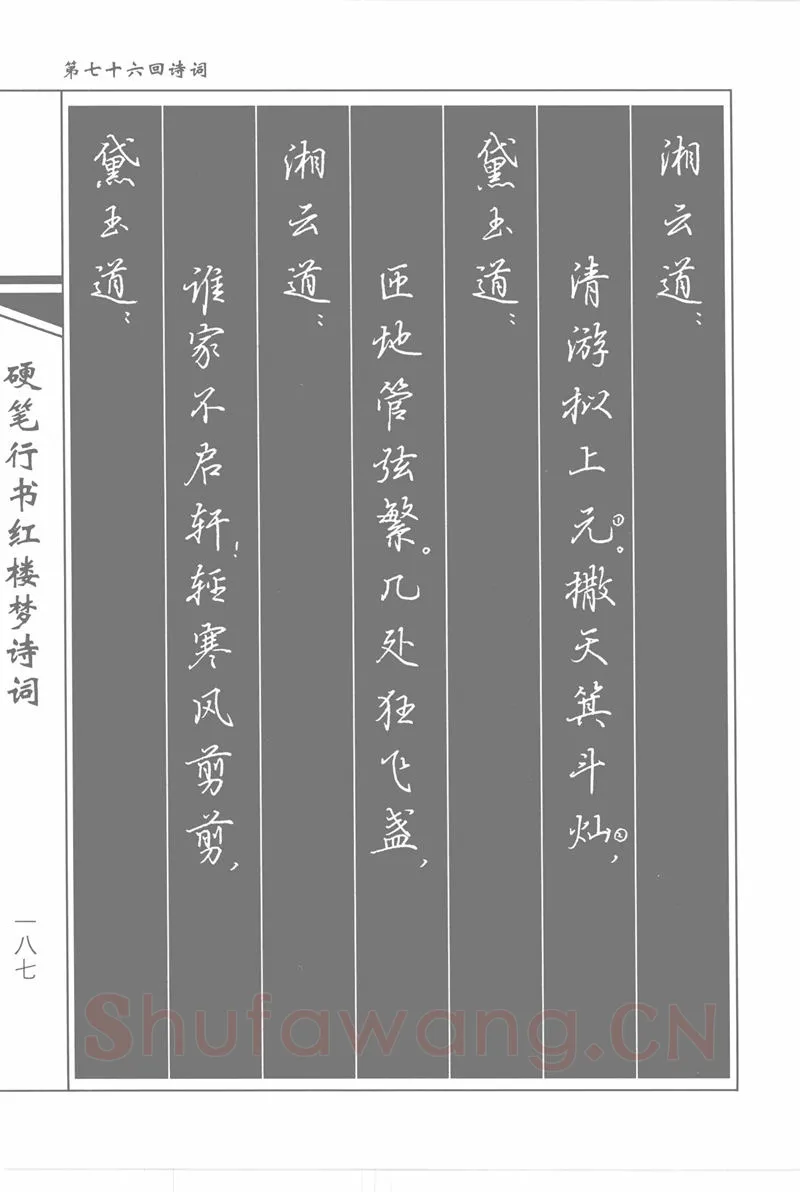 第七十六回诗词
湘云道：
清游拟上元①。撒天箕斗灿②，
黛玉道：
匝地管弦繁。几处狂飞盏，
湘云道：
谁家不启轩！轻寒风剪剪，
黛玉道：
硬笔行书红楼梦诗词
一八七
Shufawang.CN